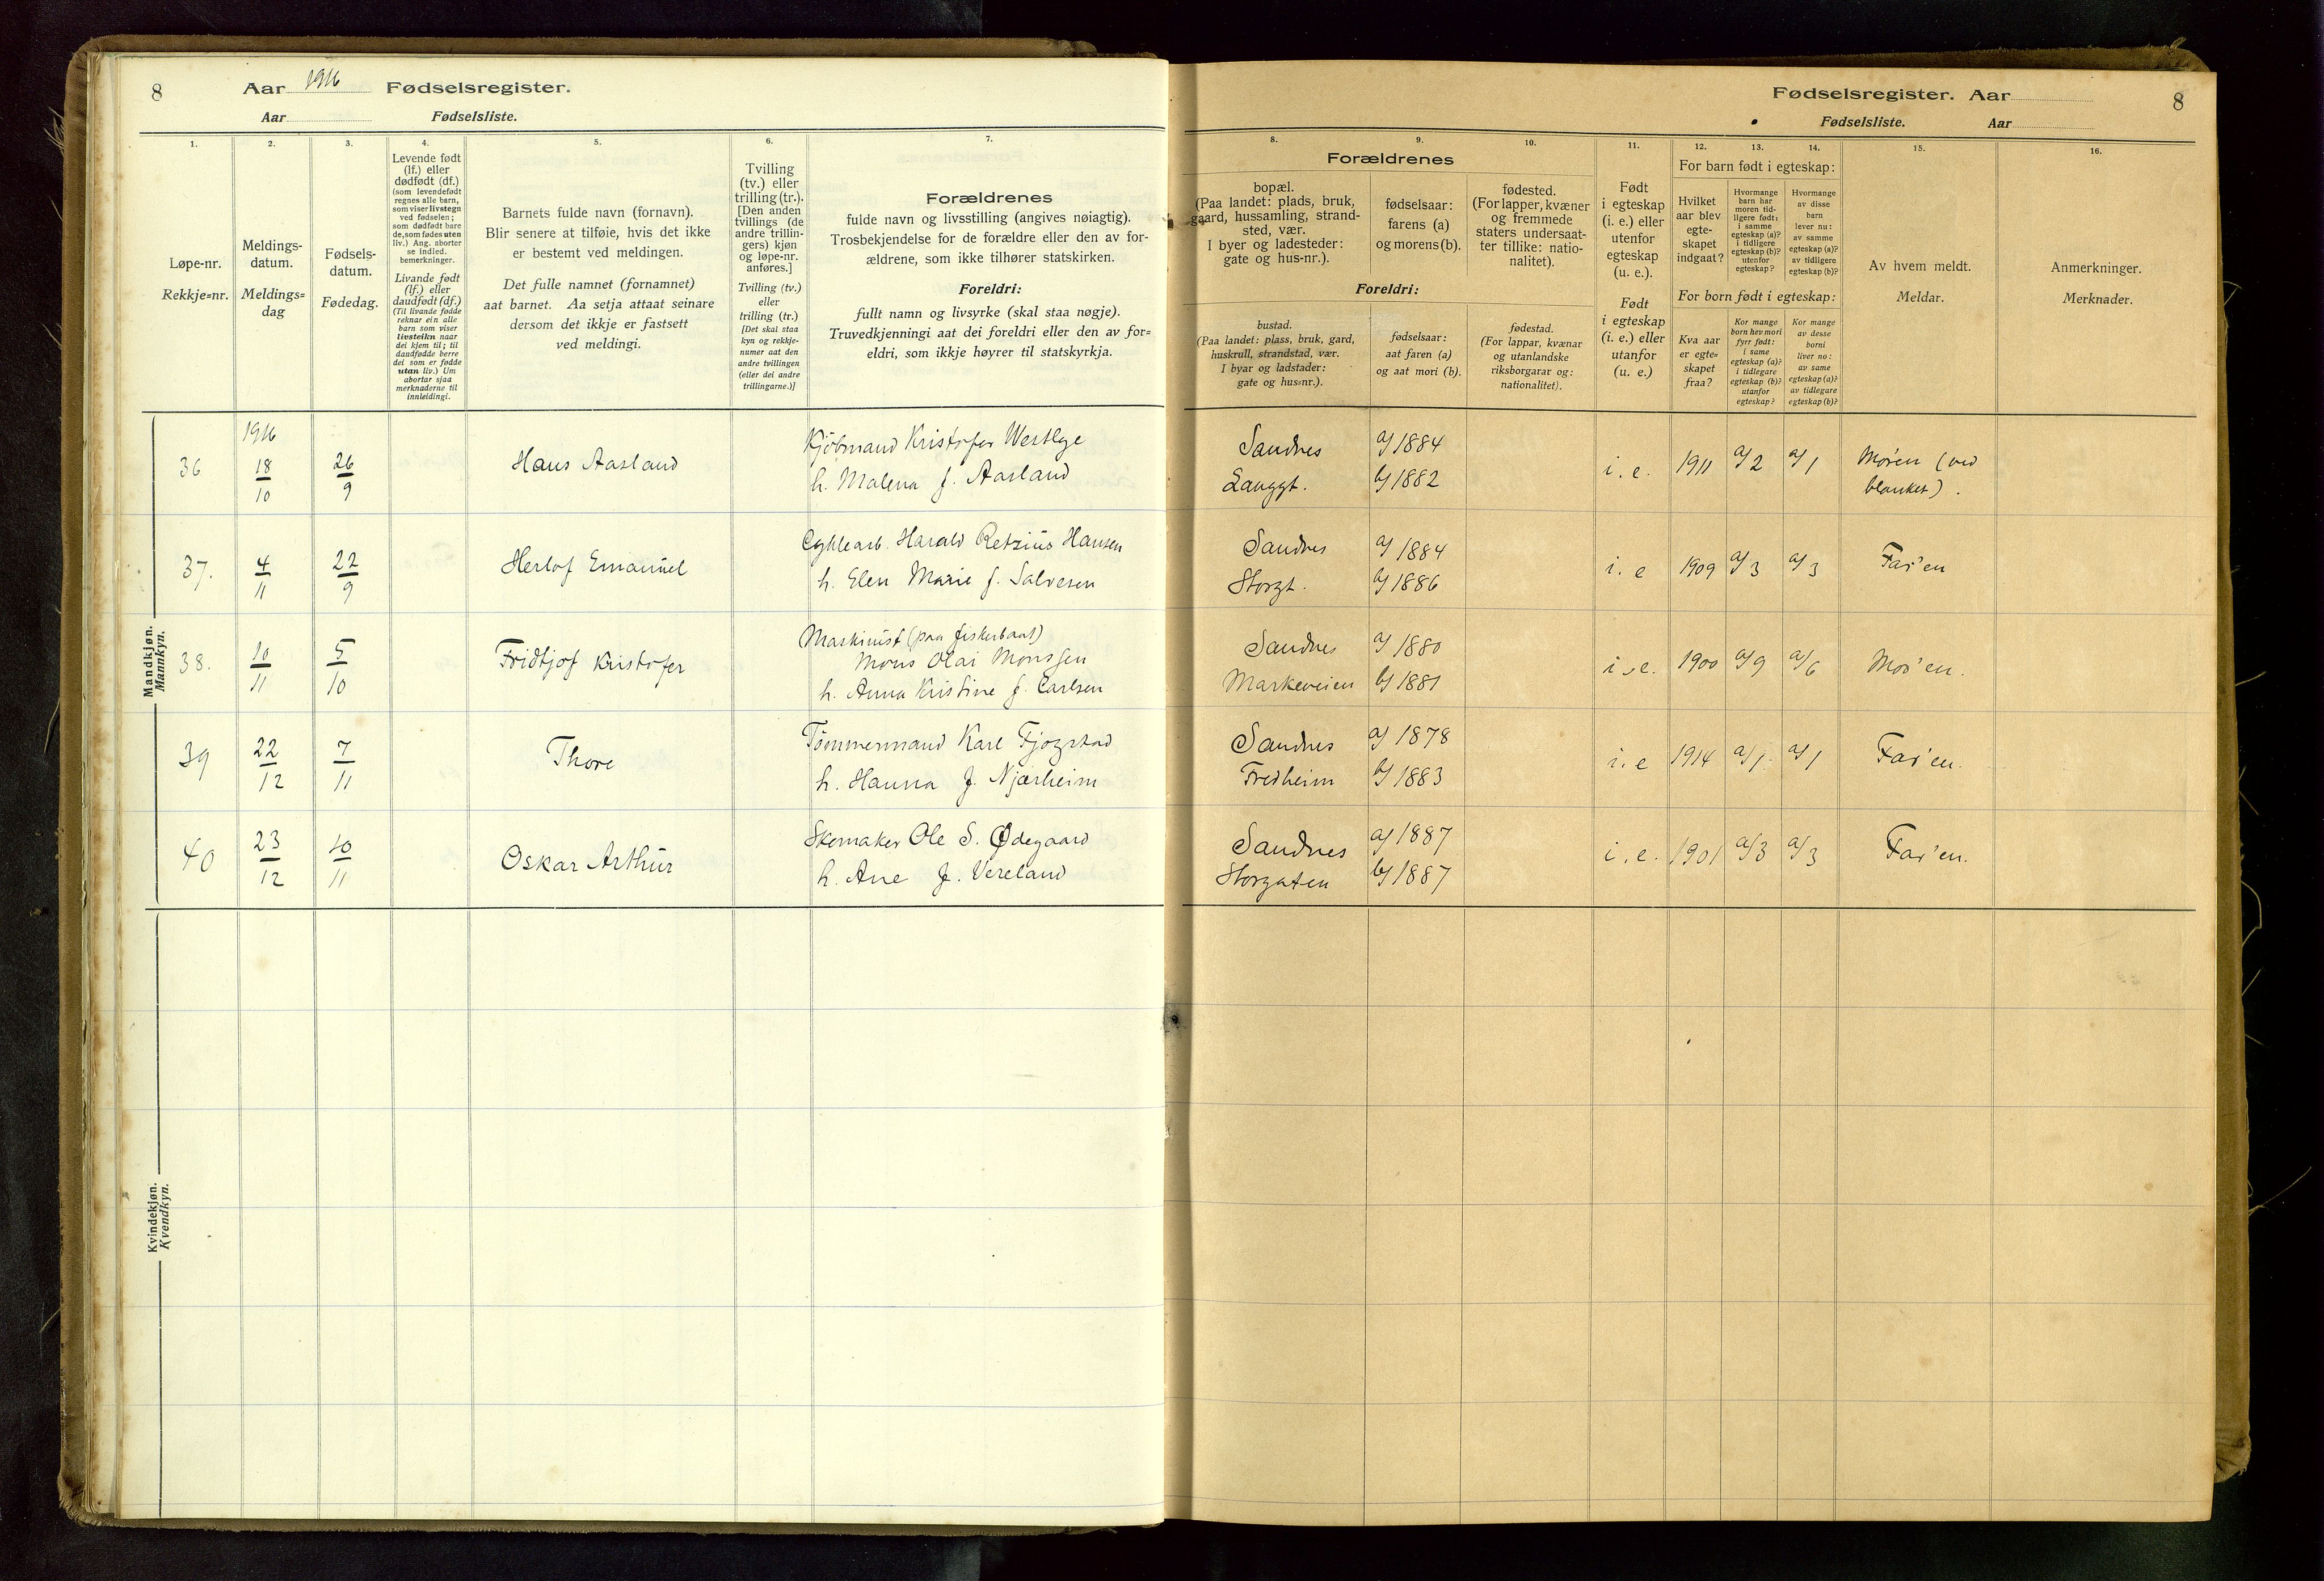 8
Aar 1916 Fødselsregister.
Aar Fødselsliste.
1.
Løpe-nr.
Rekkje=nr.
2.
Meldings-
datum.
Meldings=
dag
3.
Fødsels-
datum.
Fødedag.
4.
Levende født
(lf.) eller
dødfødt (df.)
(som levendefødt
regnes alle barn,
som viser livstegn
ved fødselen;
som dødfødt bare
de, som fødes uten
liv.) Ang. aborter
se indled.
bemerkninger.
Livande født
(lf.) eller
daudfødt (df.)
(Til livande fødde
reknar ein alle
barn som viser
livsteikn naar
dei kjem til; til
daudfødde berre
dei som er fødde
utan liv.) Um
abortar sjaa
merknaderne til
innleidingi.
5.
Barnets fulde navn (fornavn).
Blir senere at tilføie, hvis det ikke
er bestemt ved meldingen.
Det fulle namnet (fornamnet)
aat barnet. Aa setja attaat seinare
dersom det ikkje er fastsett
ved meldingi.
6.
Tvilling
(tv.) eller
trilling (tr.).
[Den anden
tvillings (de
andre trillin-
gers) kjøn
og løpe-nr.
anføres.]
Tvilling (tv.)
eller
trilling (tr.)
[Det skal staa
kyn og rekkje-
numer aat den
andre tvillingen
(eller dei andre
trillingarne.)]
7.
Forældrenes
fulde navn og livsstilling (angives nøiagtig).
Trosbekjendelse for de forældre eller den av for-
ældrene, som ikke tilhører statskirken.
Foreldri:
fullt namn og livsyrke (skal staa nøgje).
Truvedkjenningi aat dei foreldri eller den av for=
eldri, som ikkje høyrer til statskyrkja.
Mandkjøn.
Mannkyn.
1916
36 18/10 26/9 Hans Aasland Kjøbmand Kristofer Westlye
h. Malena f. Aasland
37. 4/11 22/9 Herlof Emanuel Cyklearb. Harald Retzius Hansen
h. Elen Marie f. Salvesen
38. 10/11 5/10 Fridtjof Kristofer Maskinist (paa fiskerbaat)
Mons Olai Monssen
h. Anna Kristine f. Carlsen
39 22/12 7/11 Thore Tømmermand Karl Fjogstad
h. Hanna f. Njærheim
40 23/12 10/11 Oskar Arthur Skomaker Ole S. Ødegaard
h. Ane f. Vereland
Kvindekjøn.
Kvendkyn.
Fødselsregister. Aar
8
Fødselsliste. Aar
8.
Forældrenes
bopæl.
(Paa landet: plads, bruk,
gaard, hussamling, strand-
sted, vær.
I byer og ladesteder:
gate og hus-nr.).
Foreldri:
bustad.
(Paa landet: plass, bruk, gard,
huskrull, strandstad, vær.
I byar og ladstader:
gate og hus=nr.).
9.
fødselsaar:
farens (a)
og morens (b).
fødselsaar:
aat faren (a)
og aat mori (b).
10.
fødested.
(For lapper, kvæner
og fremmede
staters undersaat-
ter tillike: natio-
nalitet).
fødestad.
(For lappar, kvænar
og utanlandske
riksborgarar og:
nationalitet).
11.
Født
i egteskap
(i. e.) eller
utenfor
egteskap
(u. e.).
Født
i egteskap
(i. e.) eller
utanfor
(u. e.)
For barn født i egteskap:
12.
Hvilket
aar blev
egte-
skapet
indgaat?
13.
Hvormange
barn har
moren tid-
ligere født:
i samme
egteskap (a)?
i tidligere
egteskap (b)?
utenfor
egteskap?
14.
Hvormange
av disse
barn
lever nu:
av samme
egteskap (a)?
av tidligere
egteskap (b)?
For born født i egteskap:
Kva aar
er egte=
skapet
fraa?
Kor mange
born hev mori
fyrr født:
i same
egteskap (a)?
i tidlegare
egteskap (b)?
utanfor
egteskap?
Kor mange
av desse
borni
liver no:
av same
egteskap (a)?
av tidlegare
egteskap (b)?
15.
Av hvem meldt.
Meldar.
16.
Anmerkninger.
Merknader.
Sandnes a/1884
Langgt. b/1882 i. e. 1911 a/2 a/1 Mor'en (ved
blanket).
Sandnes a/1884
Storgt. b/1886 i. e 1909 a/3 a/3 Far'en
Sandnes a/1880
Markeveien b/1881 i. e. 1900 a/9 a/6 Mor'en.
Sandnes a/1878
Fredheim b/1883 i. e 1914 a/1 a/1 Far'en.
Sandnes a/1887
Storgaten b/1887 i. e. 1901 a/3 a/3 Far'en.